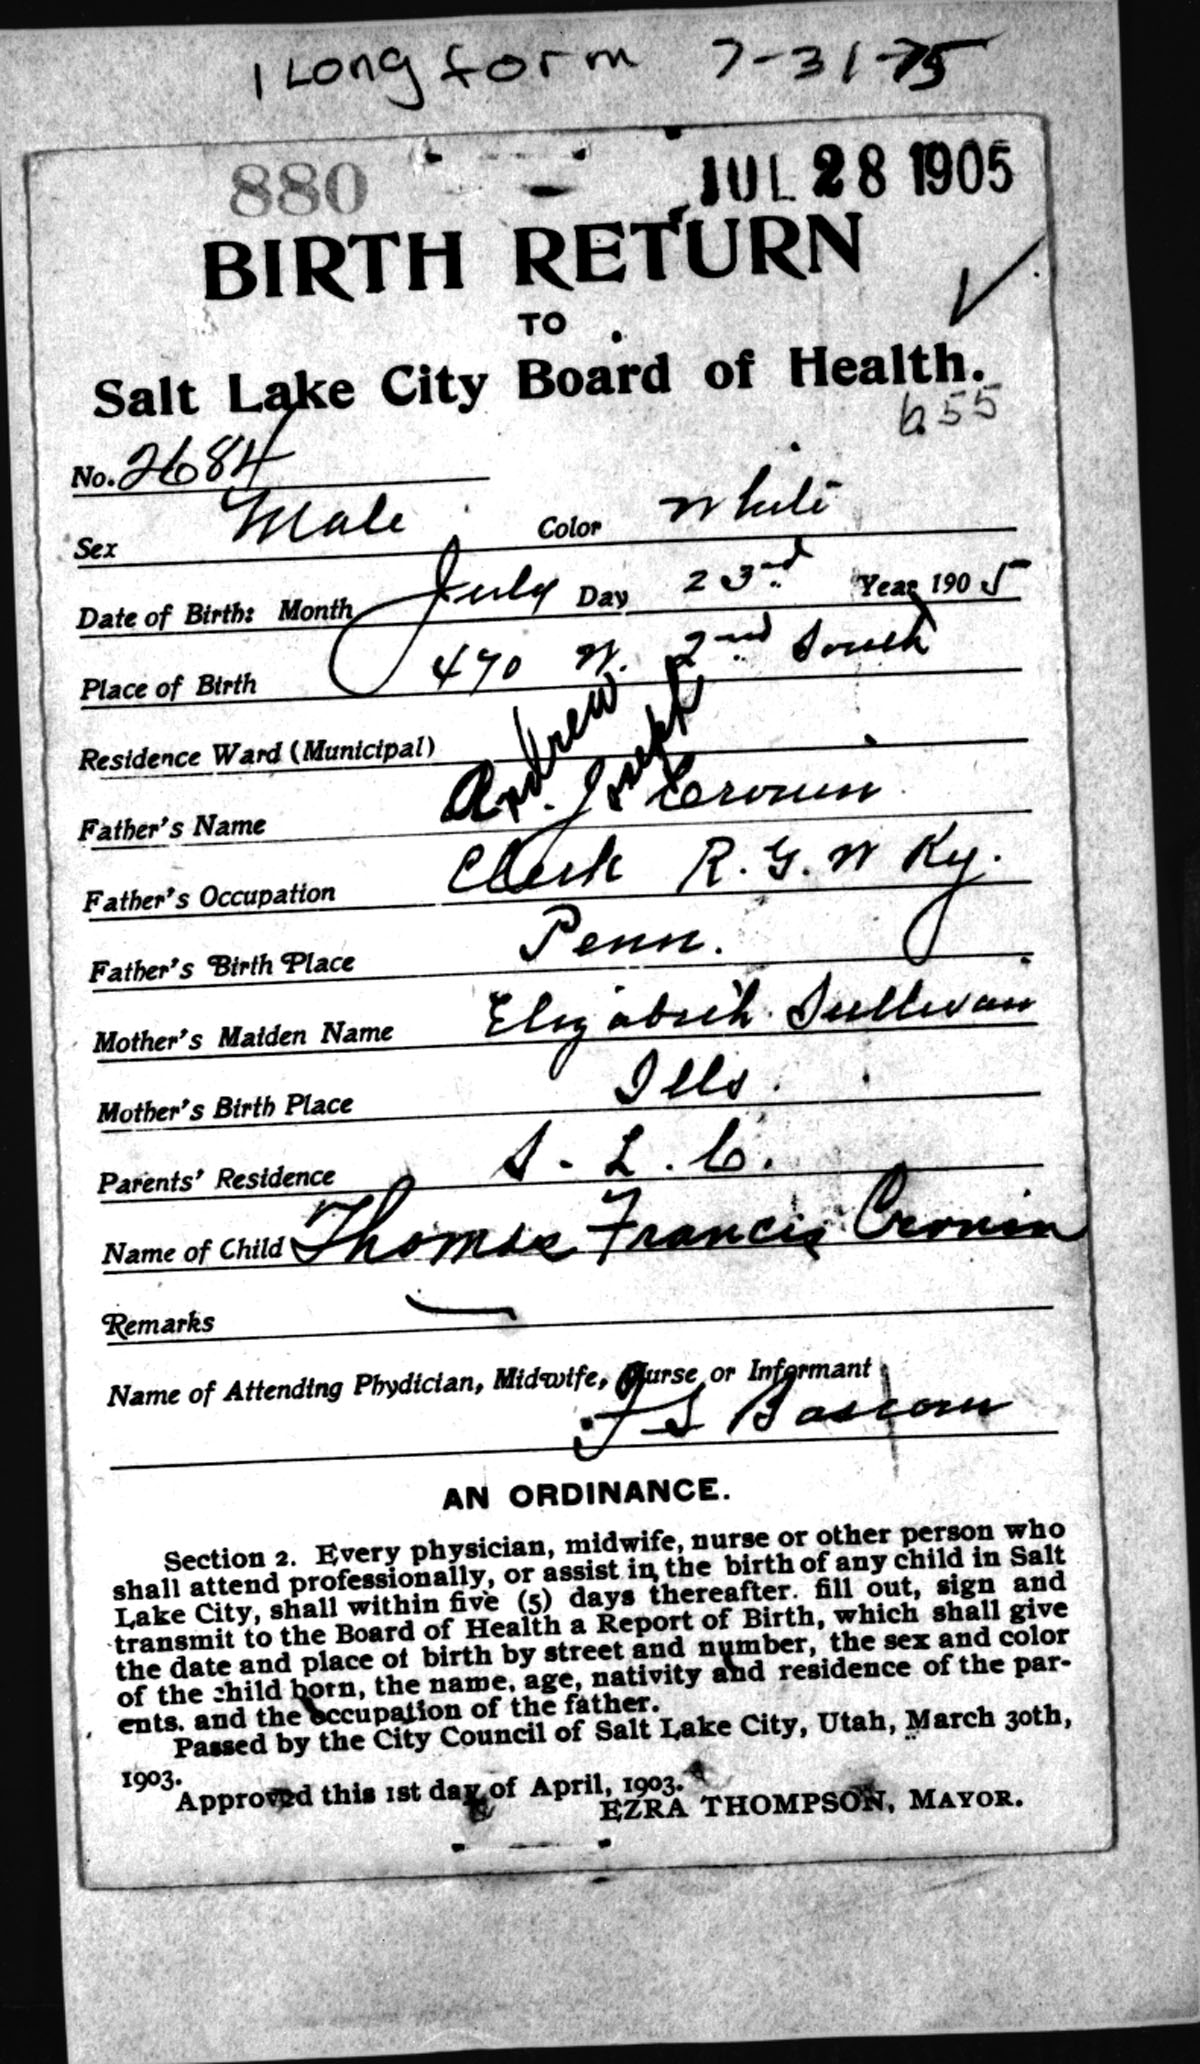 1 Long form 7-31-75
880 JUL 28 1905
BIRTH RETURN
TO
Salt Lake City Board of Health.
655
No. 2684
Sex Male Color White
Date of Birth: Month July Day 23rd Year 1905
Place of Birth 470 W. 2nd South
Residence Ward (Municipal)
Father's Name Andrew Joseph Cronin
Father's Occupation Clerk R. G. W Ry.
Father's Birth Place Penn.
Mother's Maiden Name Elizabeth Sullivan
Mother's Birth Place Ills.
Parents' Residence S. L. C.
Name of Child Thomas Francis Cronin
Remarks
Name of Attending Phydician, Midwife, Nurse or Informant
F S Bascom
AN ORDINANCE.
Section 2. Every physician, midwife, nurse or other person who
shall attend professionally, or assist in the birth of any child in Salt
Lake City, shall within five (5) days thereafter. fill out, sign and
transmit to the Board of Health a Report of Birth, which shall give
the date and place of birth by street and number, the sex and color
of the child born, the name, age, nativity and residence of the par-
ents. and the occupation of the father.
Passed by the City Council of Salt Lake City, Utah, March 30th,
1903.
Approved this 1st day of April, 1903.
EZRA THOMPSON, MAYOR.